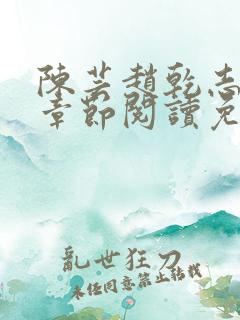 陳芸趙乾志
章節閱讀免
亂世狂刀
未經同意禁止轉載